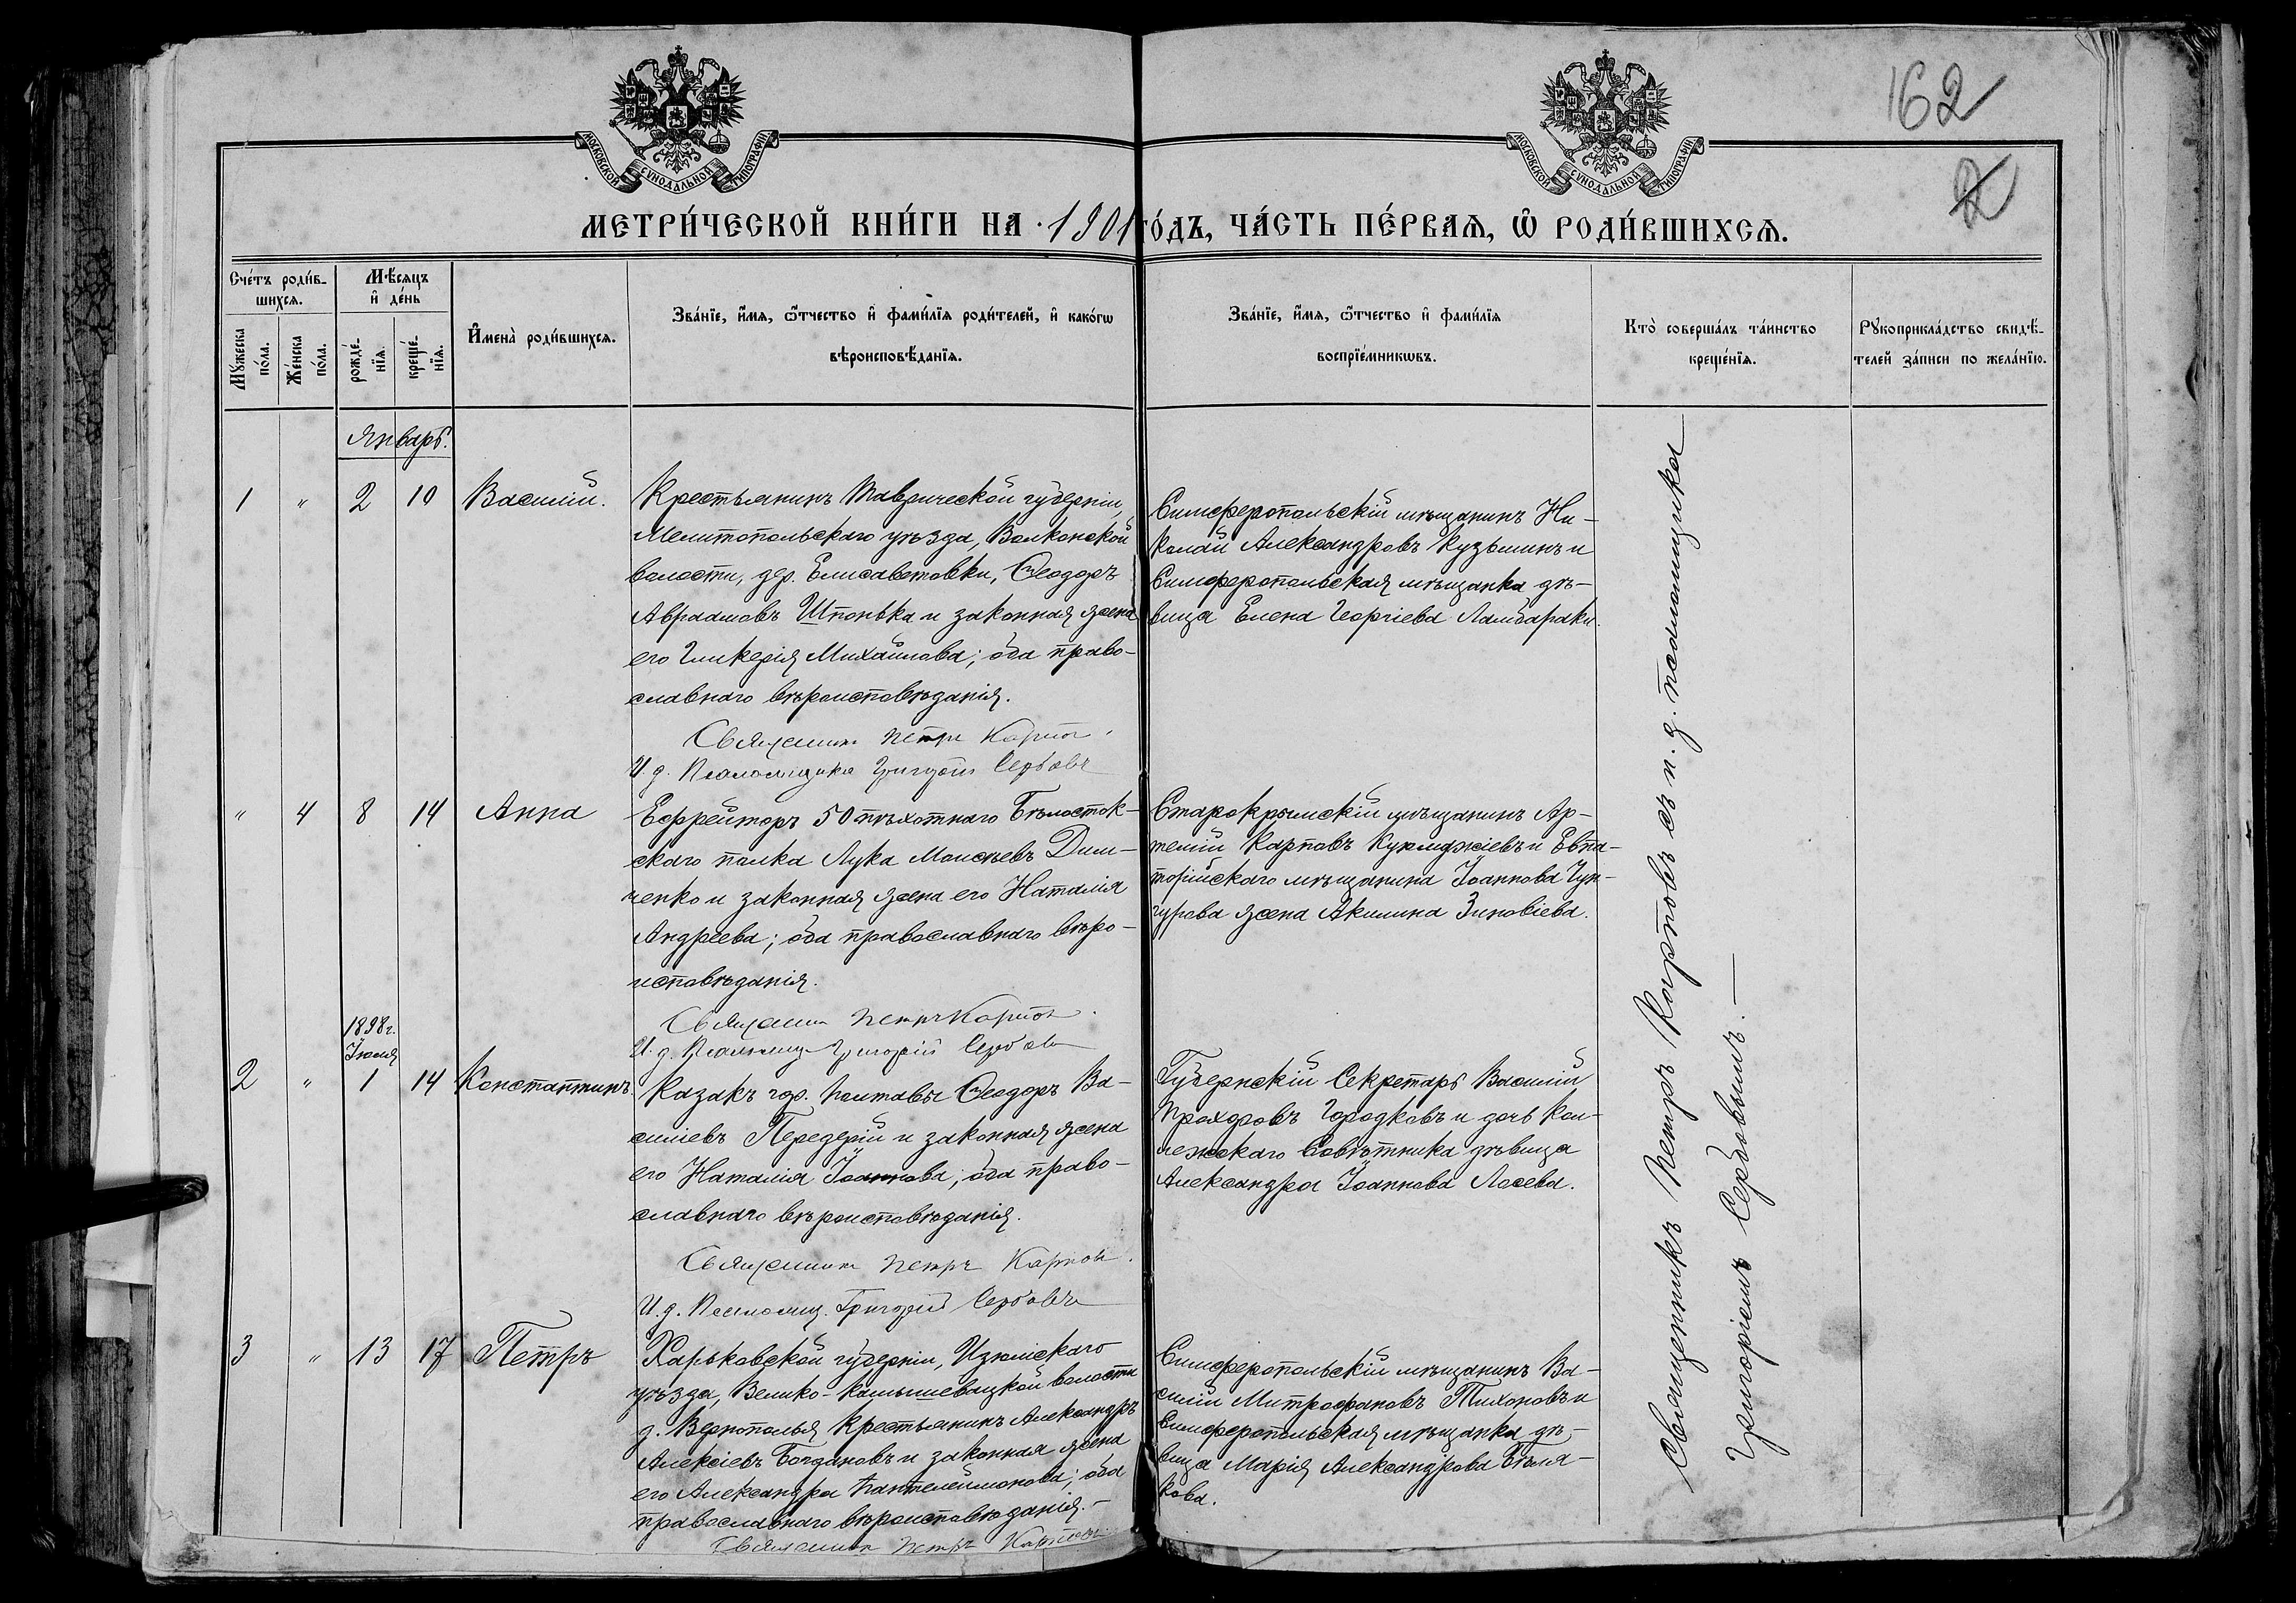 162
2
МОСКОВСКОЙ СѴНОДАЛЬНОЙ ТИПОГРАФІИ
МОСКОВСКОЙ СѴНОДАЛЬНОЙ ТИПОГРАФІИ
МЕТРИ́ЧЕСКОЙ КНИ́ГИ НА 1901 ГО́ДЪ, ЧА́СТЬ ПЕ́РВАѦ, Ѽ РОДИ́ВШИХСѦ.
Сче́тъ роди́в-
шихсѧ.
Мꙋжеска
по́ла.
Же́нска
по́ла.
Мѣ́сяцъ
и҆ де́нь
рожде́-
нїѧ.
креще́-
нїѧ.
И҆мена̀ роди́вшихсѧ.
Зва́нїе, и҆́мѧ, ѻ҆́тчество и҆ фами́лїѧ роди́телей, и҆ како́гѡ
вѣроисповѣ́данїѧ.
Зва́нїе, и҆́мѧ, ѻ҆́тчество и҆ фами́лїѧ
воспрїе́мникѡвъ.
Кто̀ соверша́лъ та́инство
креще́нїѧ.
Рꙋкоприкла́дство свидѣ́-
телей за́писи по жела́нїю.
Январь.
1 " 2 10 Василій.
Крестьянинъ Таврической губерніи,
Мелитопольскаго уѣзда, Волконской
волости, дер. Елисаветовки, Ѳеодоръ
Авраамовъ Шпонька и законная жена
его Гликерія Михайлова; оба право-
славнаго вѣроисповѣданія.
Священникъ Петръ Карповъ.
И. д. Псаломщика Григорій Сербовъ
Симферопольскій мѣщанинъ Ни-
колай Александровъ Кузьминъ и
Симферопольская мѣщанка дѣ-
вица Елена Георгіева Ламбараки.
" 4 8 14 Анна
Ефрейторъ 50 пѣхотнаго Бѣлосток-
скаго полка Лука Моисѣевъ Дим-
ченко и законная жена его Наталія
Андреева; оба православнаго вѣро-
исповѣданія.
Священникъ Петръ Карповъ.
И. д. Псаломщ. Григорій Сербовъ
Старокрымскій мѣщанинъ Ар-
темій Карповъ и Евпа-
торійскаго мѣщанина Іоаннова Чун-
гурова жена Акилина Зиновіева.
1898 г.
Іюля
2 " 1 14 Константинъ.
Казакъ гор. Полтавы Ѳеодоръ Ва-
силіевъ Передерій и законная жена
его Наталія Іоаннова; оба право-
славнаго вѣроисповѣданія.
Священникъ Петръ Карповъ.
И. д. Псаломщ. Григорій Сербовъ
Губернскій Секретарь Василій
Прохоровъ Городковъ и дочь Кол-
лежскаго Совѣтника дѣвица
Александра Іоаннова Лосева.
3 " 13 17 Петръ
Харьковской губерніи, Изюмскаго
уѣзда, Велико-Камышевацкой волости
д. Вернополья крестьянинъ Александръ
Алексіевъ Богдановъ и законная жена
его Александра Пантелеймонова; оба
православнаго вѣроисповѣданія.-
Священникъ Петръ Карповъ
Симферопольскій мѣщанинъ Ва-
силій Митрофановъ Тихоновъ и
Симферопольская мѣщанка дѣ-
вица Марія Александрова Бѣля-
кова.
Священникъ Петръ Карповъ съ и. д. псаломщика
Григоріемъ Сербовымъ.—